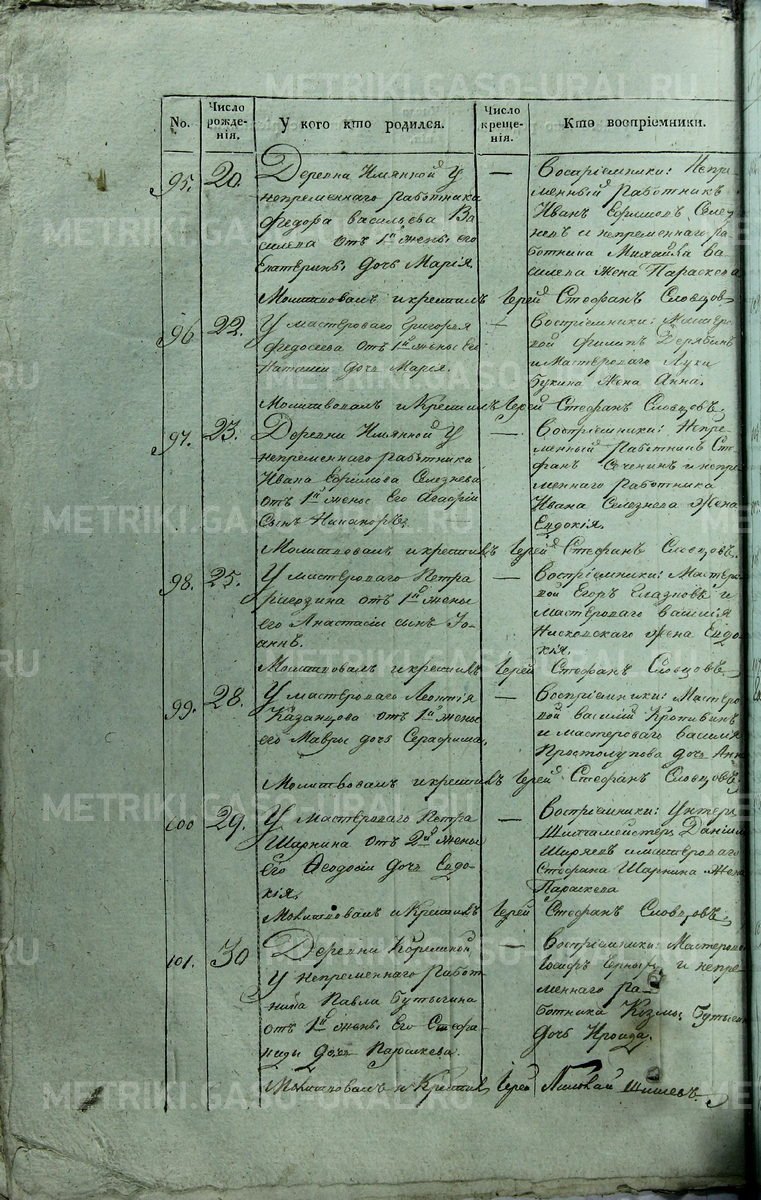 METRIKI.GASO-URAL.RU
No.
Число рожде-нія.
У кого кто родился.
Число креще-нія.
Кто воспріемники.
95. 20. Деревни Имянной У
непременнаго работника
Федора Васильева Ва
силева отъ 1й жены его
Екатерины дочь Марія.
—
Воспріемники: Непре
менный работникъ
Иванъ Ефимовъ Селез
невъ и непременнаго ра
ботника Михайла Ва
силева жена Параскева
Молитвовалъ и крестилъ Іерей Стефанъ Словцовъ
96 22. У мастероваго Григорья
Федосеева отъ 1й жены его
Наталіи дочь Марья.
—
Воспріемники: Мастеро
вой Филипъ Дерябинъ
и Мастероваго Луки
Букина жена Анна.
Молитвовалъ и крестилъ Іерей Стефанъ Словцовъ
97. 23. Деревни Имянной У
непременнаго работника
Ивана Ефимова Селезнева
отъ 1й жены Его
Сынъ Никаноръ.
—
Воспріемники: Непре
менный работникъ Сте
фанъ и непре
меннаго работника
Ивана Селезнева жена
Евдокія.
Молитвовалъ и крестилъ Іерей Стефанъ Словцовъ.
98. 25. У мастероваго Петра
отъ 1й жены
его Анастасіи сынъ Іо
аннъ.
—
Воспріемники: Мастеро
вой Егоръ Глазковъ и
мастероваго Василія
жена Евдо
кія.
Молитвовалъ и крестилъ Іерей Стефанъ Словцовъ
99. 28. У мастероваго Леонтія
Казанцова отъ 1й жены
его Мавры дочь Серафима.
—
Воспріемники: Мастеро
вой Василій
и мастероваго Василія
Простолупова дочь Анна
Молитвовалъ и крестилъ Іерей Стефанъ Словцовъ
100 29. У Мастероваго Петра
Шарнина отъ 2й жены
Его Феодосіи Дочь Евдо
кія.
Воспріемники: Унтеръ
Шихтмейстеръ Даніилъ
Ширяевъ и мастероваго
Стефана Шарнина жена
Параскева
Молитвовалъ и Крестилъ Іерей Стефанъ Словцовъ.
101. 30 Деревни
У непременнаго Работ
ника Павла Бутыгина
отъ 1й жены Его Стефа
ниды дочь Параскева.
—
Воспріемники: Мастеровой
Іосифъ и непре
меннаго ра
ботника Козмы Бутыгина
дочь Ироида.
Молитвовалъ и Крестилъ Іерей Николай Шишевъ.